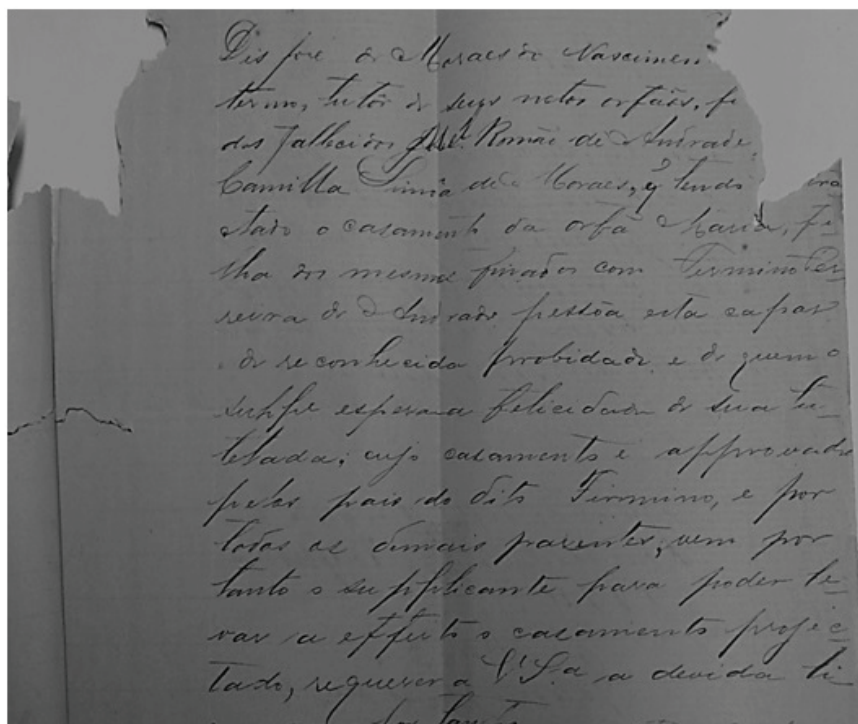 Diz José de Moraes do Nascimen
termo, tutôr de seus netos orfãos, fi
dos fallecidos Romão de Andrade
Camilla de Moraes, q̃ tendo
ctado o casamento da orfã Maria, fi-
lha dos mesmos finados com Firmino Per-
reira de Andrade pessôa esta capas
de reconhecida probidade e de quem o
suppe espera a felicidade de sua tu-
tellada; cujo casamento é approvado
pelos pais do dito Firmino, e por
todos os demais parentes; vem por
tanto o supplicante para poder le-
var a effeito o casamento projec-
tado, requerer a V.S.a a devida li